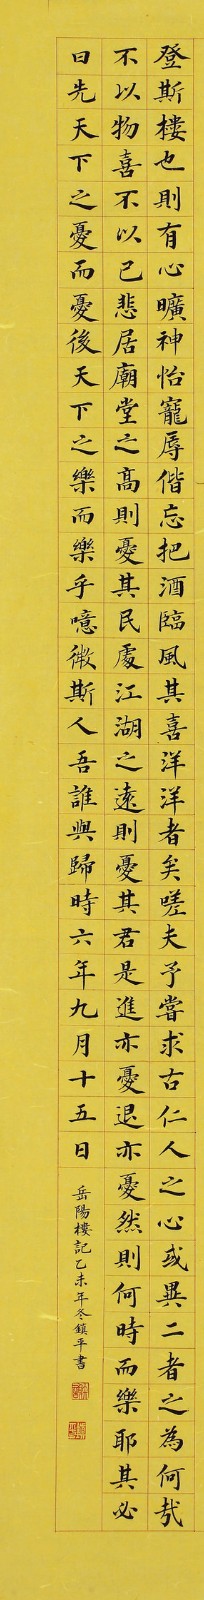 登斯樓也則有心曠神怡寵辱偕忘把酒臨風其喜洋洋者矣嗟夫予嘗求古仁人之心或異二者之為何哉
不以物喜不以己悲居廟堂之高則憂其民處江湖之遠則憂其君是進亦憂退亦憂然則何時而樂耶其必
曰先天下之憂而憂後天下之樂而樂乎噫微斯人吾誰與歸時六年九月十五日
岳陽樓記乙未年冬鎮平書